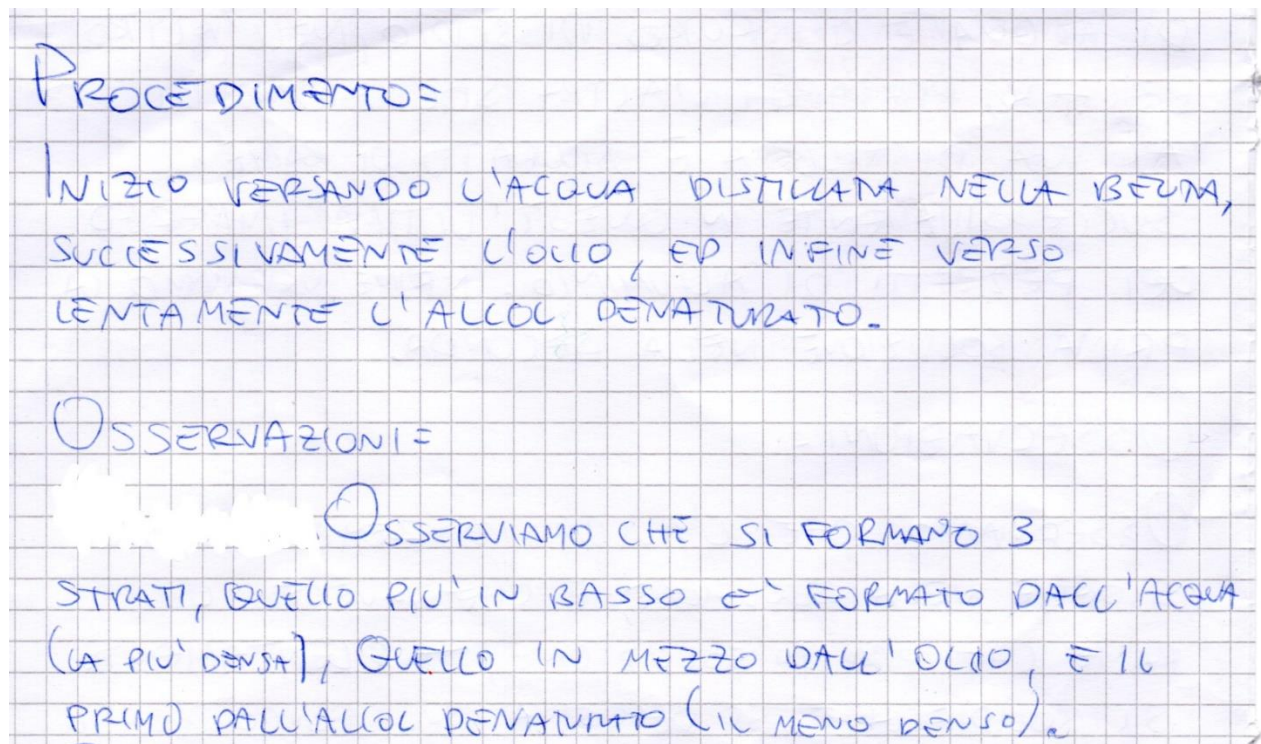 PROCEDIMENTO:
INIZIO VERSANDO L'ACQUA DISTILLATA NELLA BEUTA,
SUCCESSIVAMENTE L'OLIO, ED INFINE VERSO
LENTAMENTE L'ALCOL DENATURATO.
OSSERVAZIONI:
OSSERVIAMO CHE SI FORMANO 3
STRATI, QUELLO PIU' IN BASSO E' FORMATO DALL'ACQUA
(LA PIU' DENSA), QUELLO IN MEZZO DALL'OLIO, E IL
PRIMO DALL'ALCOL DENATURATO (IL MENO DENSO).